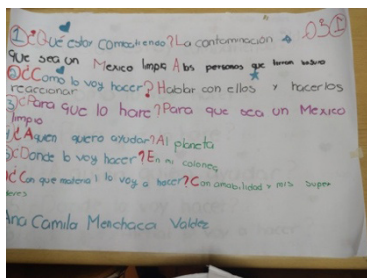 1) ¿Qué estoy combatiendo? La contaminación O3I
que sea un Mexico limpio A las personas que tiran basura
2) ¿Como lo voy hacer? Hablar con ellos y hacerlos
reaccionar
3) ¿Para que lo hare? Para que sea un Mexico
limpio
¿A quien quiero ayudar? Al planeta
¿Donde lo voy hacer? En mi colonia
¿Con que material lo voy a hacer? Con amabilidad y mis super
Ana Camila Menchaca Valdez